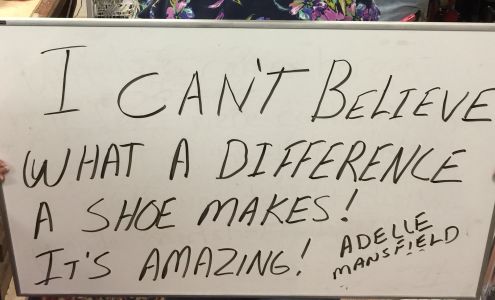 I CAN'T BELIEVE
WHAT A DIFFERENCE
A SHOE MAKES!
IT'S AMAZING!
ADELLE
MANSFIELD